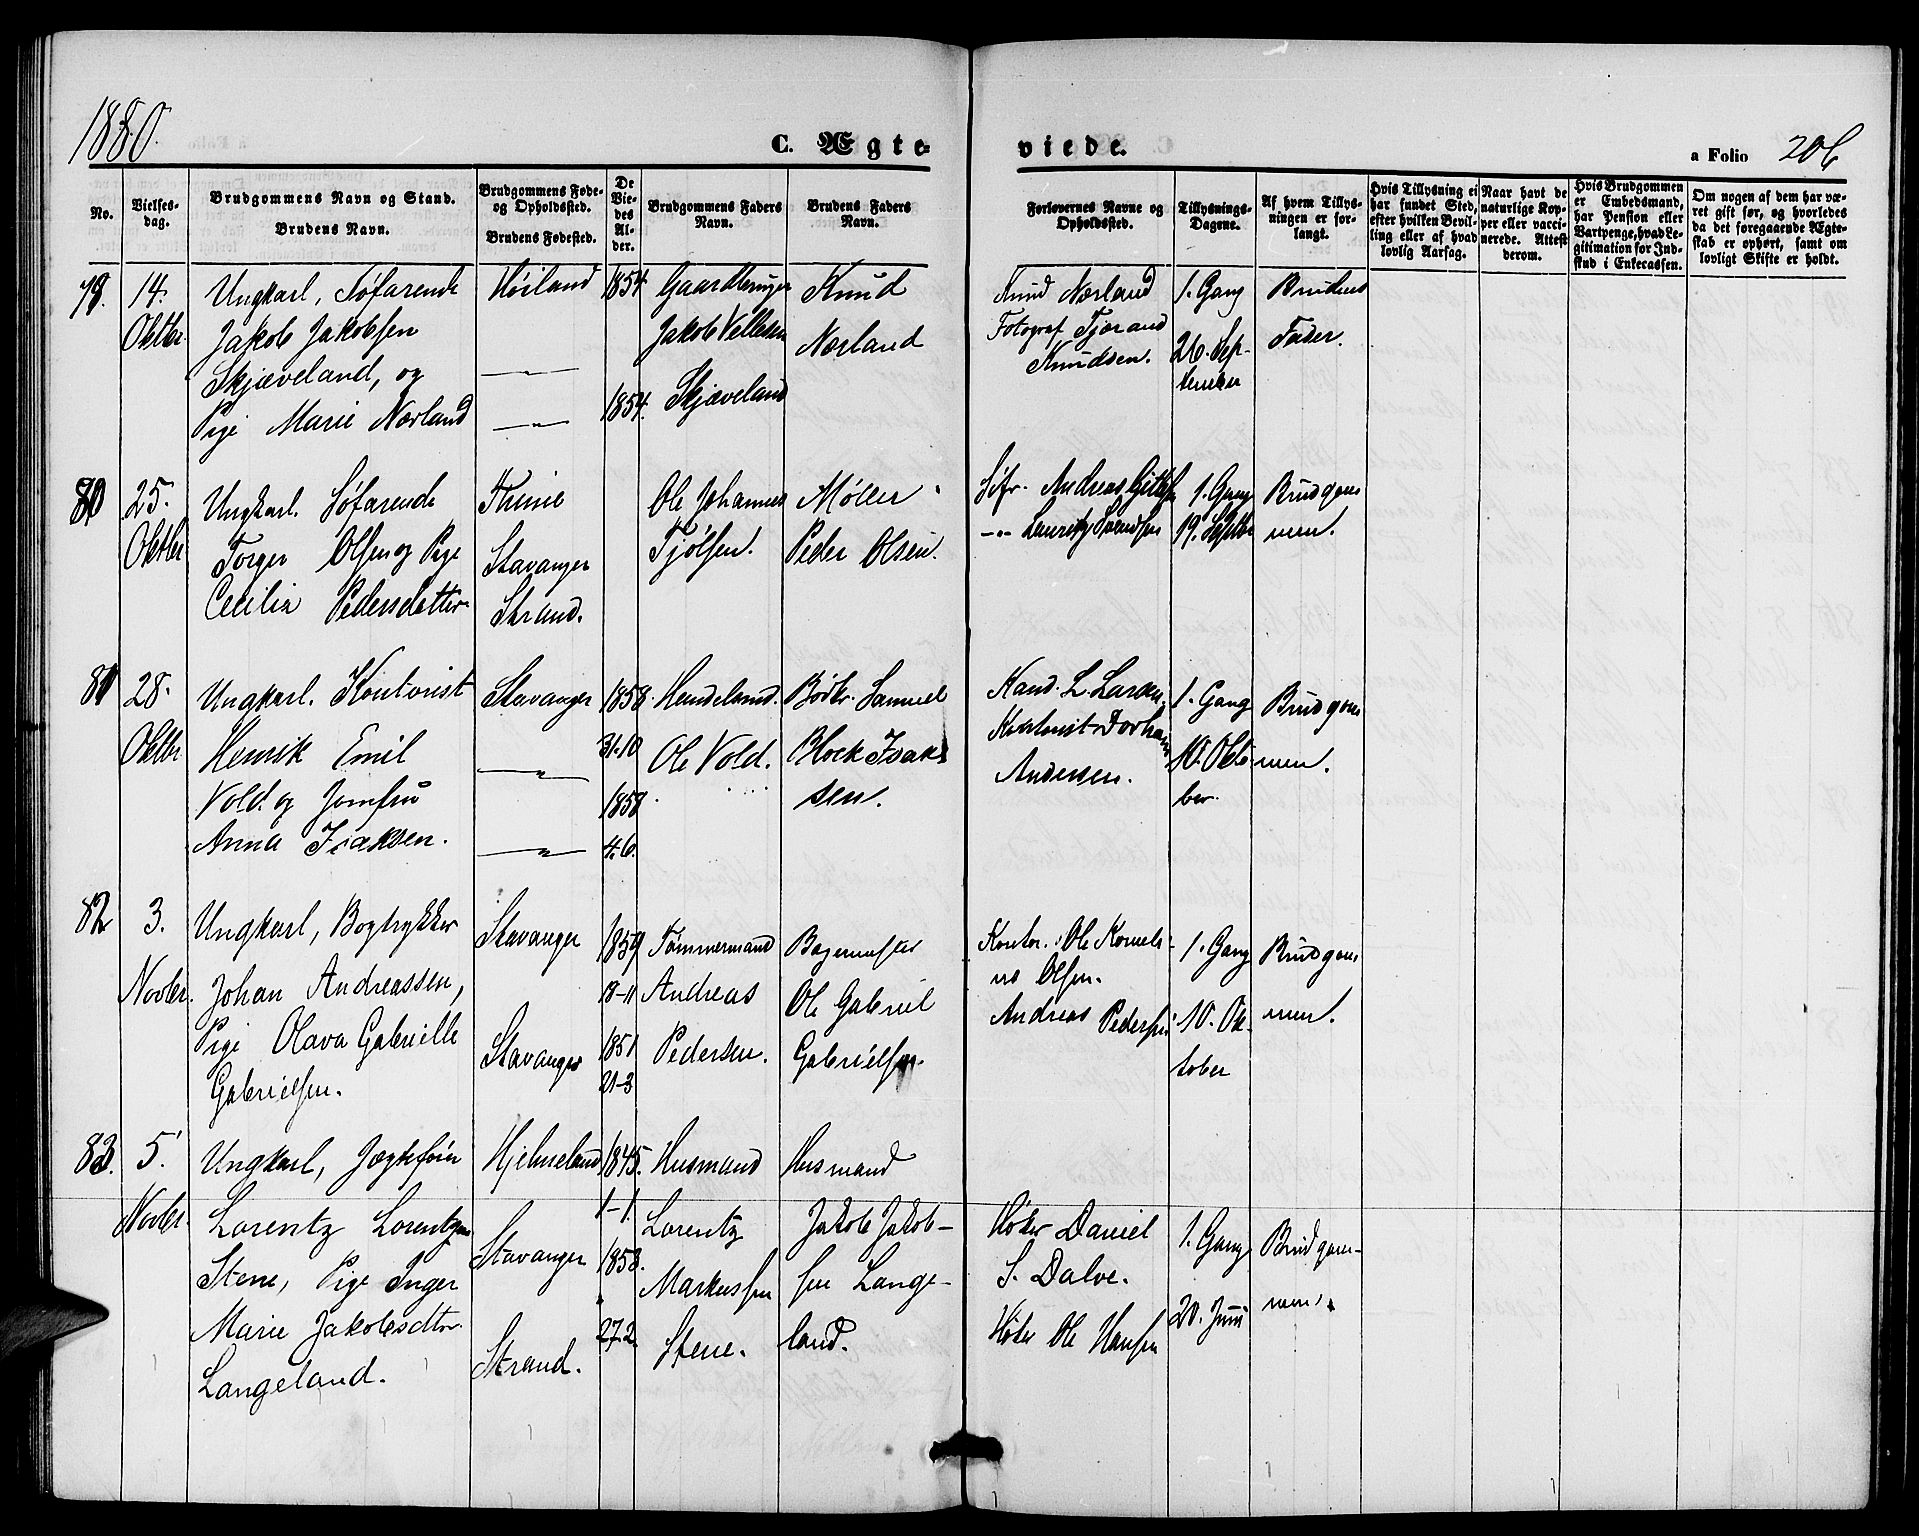 1880.
C. Ægte-
viede.
a Folio 206
No.
Vielses-
dag.
Brudgommens Navn og Stand.
Brudens Navn.
Brudgommens Føde-
og Opholdssted.
Brudens Fødested.
De
Vie-
des
Al-
der.
Brudgommens Faders
Navn.
Brudens Faders
Navn.
Forlovernes Navne og
Opholdssted.
Tillysnings-
Dagene.
Af hvem Tillys-
ningen er for-
langt.
Hvis Tillysning ei
har fundet Sted,
efter hvilken Bevil-
ling eller af hvad
lovlig Aarsag.
Naar havt de
naturlige Kop-
per eller vacci-
nerede. Attest
derom.
Hvis Brudgommen
er Embedsmand,
har Pension eller
Vartpenge, hvad Le-
gitimation for Ind-
skud i Enkecassen.
Om nogen af dem har væ-
ret gift før, og hvorledes
da det foregaaende Ægte-
skab er ophørt, samt om
lovligt Skifte er holdt.
79.
14.
Oktbr.
Ungkarl, Søfarende
Jakob Jakobsen
Skjæveland, og
Pige Marie Nærland
Høiland
—„—
—„—
1854
1854.
Jakob
Skjæveland
Knud
Nærland
Knud Nærland
Fotograf Tjærand
Knudsen.
1. Gang
26. Sep-
tember
Brudens
Fader.
80
25.
Oktbr
Ungkarl. Søfarende
Torger Olsen og Pige
Cecilia Pedersdatter
Thime
Stavanger
Strand.
Ole Johannes
Tjølsen.
Møller
Peder Olsen.
Søfr. Andreas
—„— Lauritz Svendsen
1. Gang
19. Septbr
Brudgom
men.
81
28.
Oktbr
Ungkarl. Kontorist
Henrik Emil
Vold. og Jomfru
Anna Isaksen.
Stavanger
—„—
—„—
1858.
31-10
1858
4.6.
Ole Vold.
Bødkr. Samuel
Block Isak
sen.
Kand. L. Larsen,
Kontorist
Andersen.
1. Gang
10. Okto
ber.
Brudgom
men.
82
3.
Novbr.
Ungkarl, Bogtrykker
Johan Andreassen,
Pige Olava Gabrielle
Gabrielsen.
Stavanger
Stavanger
1859
18-11
1851
21-3
Tømmermand
Andreas
Pedersen.
Bagermester
Ole Gabriel
Gabrielsen.
Kontor. Ole Korneli-
us Olsen.
Andreas Pedersen
1. Gang
10. Ok-
tober
Brudgom
men.
83.
5.
Novbr.
Ungkarl, Jægtefører
Lorentz Lorentzen
Stene, Pige Inger
Marie Jakobsdtr.
Langeland.
Hjelmeland
Stavanger
Strand.
1845.
1-1.
1853.
27.2.
Husmand
Lorentz
Markussen
Stene.
Husmand
Jakob Jakob-
sen Lange-
land.
Høker Daniel
S. Dalve.
Høker Ole Hansen
1. Gang
20. Juni
Brudgom-
men.